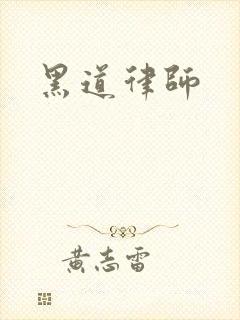 黑道律師
黄志雷